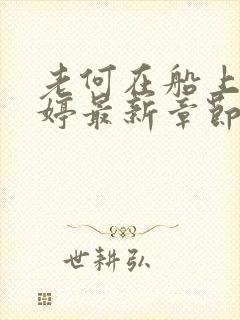 老何在船上
婷最新章節
世耕弘